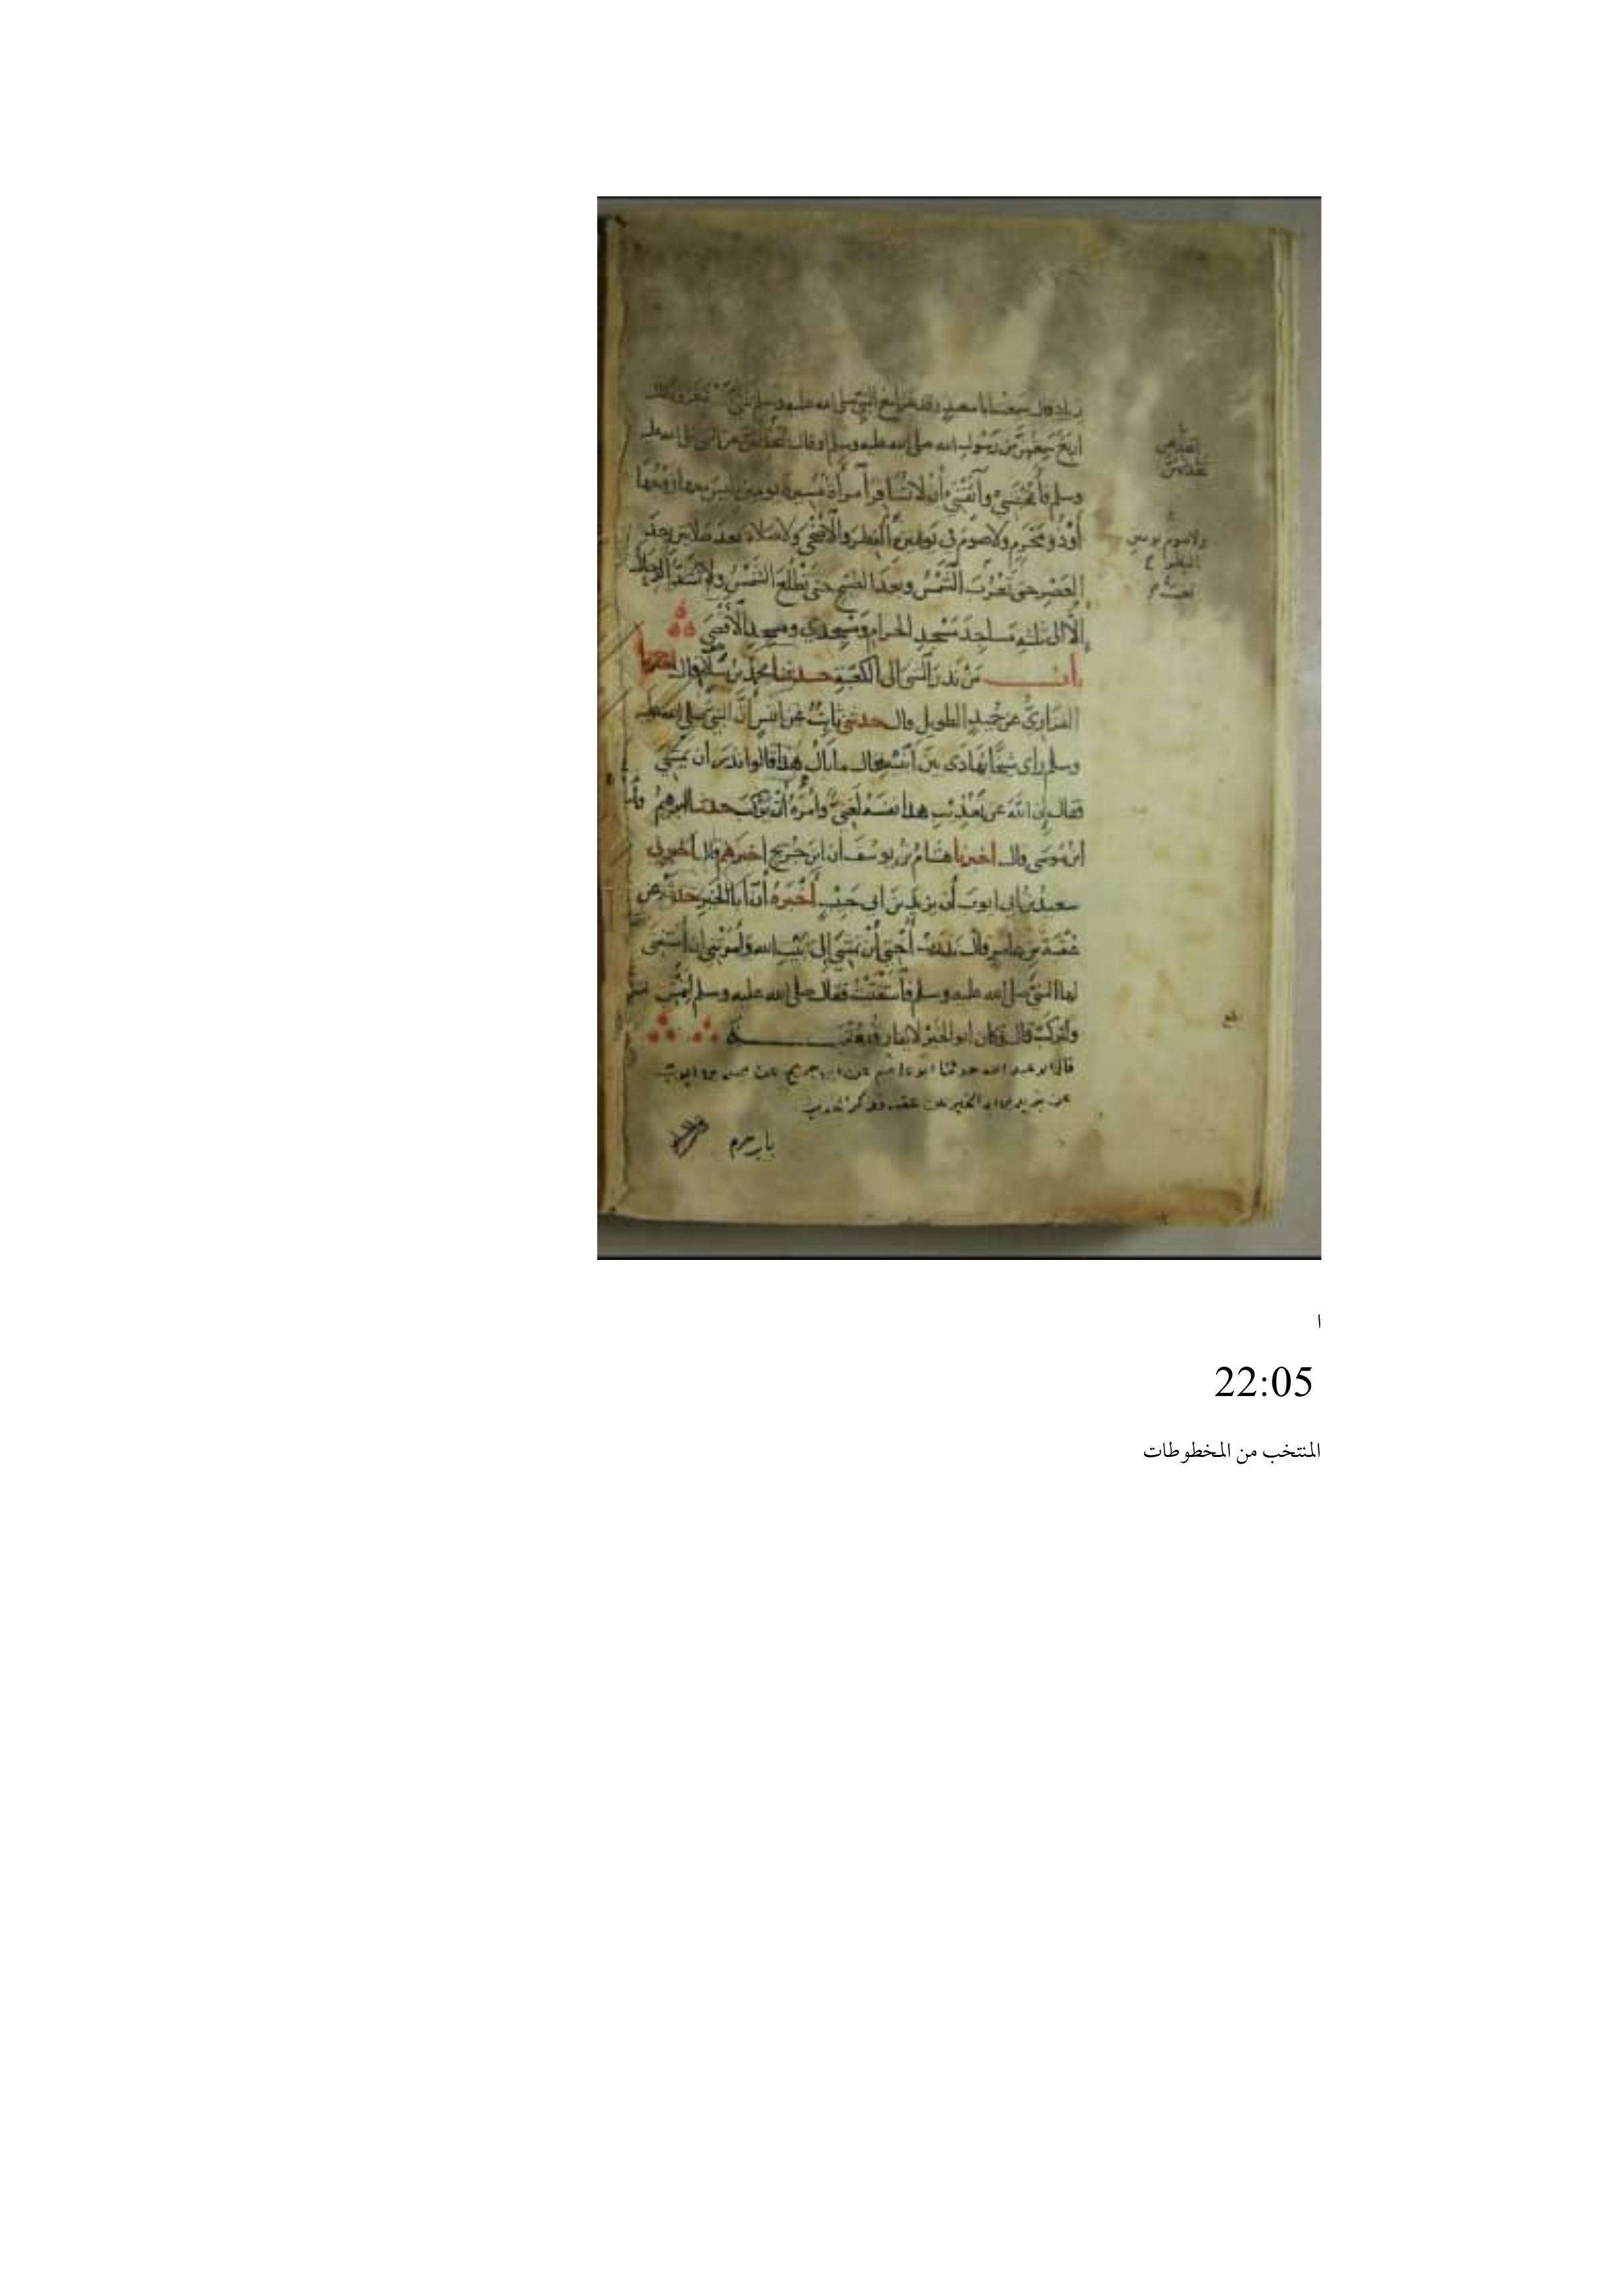 زياد قال سمعت ابا سعيد وقد غزا مع النبي صلى الله عليه وسلم
اربع سمعتهن من رسول الله صلى الله عليه وسلم او قال عن النبي صلى الله عليه
وسلم فأعجبنني وآنقنني أن لا تسافر امرأة مسيرة يومين ليس معها زوجها
أو ذو محرم ولا صوم في يومين الفطر والأضحى ولا صلاة بعد صلاتين بعد
العصر حتى تغرب الشمس وبعد الصبح حتى تطلع الشمس ولا تشد الرحال
إلا الى ثلثة مساجد مسجد الحرام ومسجدي ومسجد الأقصى
باب من نذر المشي الى الكعبة حدثنا محمد بن سلام قال اخبرنا
الفزاري عن حميد الطويل قال حدثني ثابت عن انس أن النبي صلى الله عليه
وسلم رأى شيخا يهادى بين ابنيه قال ما بال هذا قالوا نذر ان يمشي
فقال إن الله عن تعذيب هذا نفسه لغني وأمره أن يركب حدثنا ابرهيم
ابن موسى قال اخبرنا هشام بن يوسف أن ابن جريج أخبرهم قال اخبرني
سعيد بن ابي ايوب أن يزيد بن ابي حبيب أخبره أن أبا الخير حدثه عن
عقبة بن عامر قال نذرت أختي أن تمشي إلى بيت الله وأمرتني ان أستفتي
لها النبي صلى الله عليه وسلم فأستفتيته فقال صلى الله عليه وسلم لتمش
ولتركب قال وكان ابو الخير لا يفارق عقبة
قال ابو عبد الله حدثنا ابو عاصم عن ابن جريج عن يحيى بن ايوب
عن يزيد عن ابي الخير عن عقبة فذكر الحديث
ولا صوم يومين
الفطر
ا
22:05
المنتخب من المخطوطات